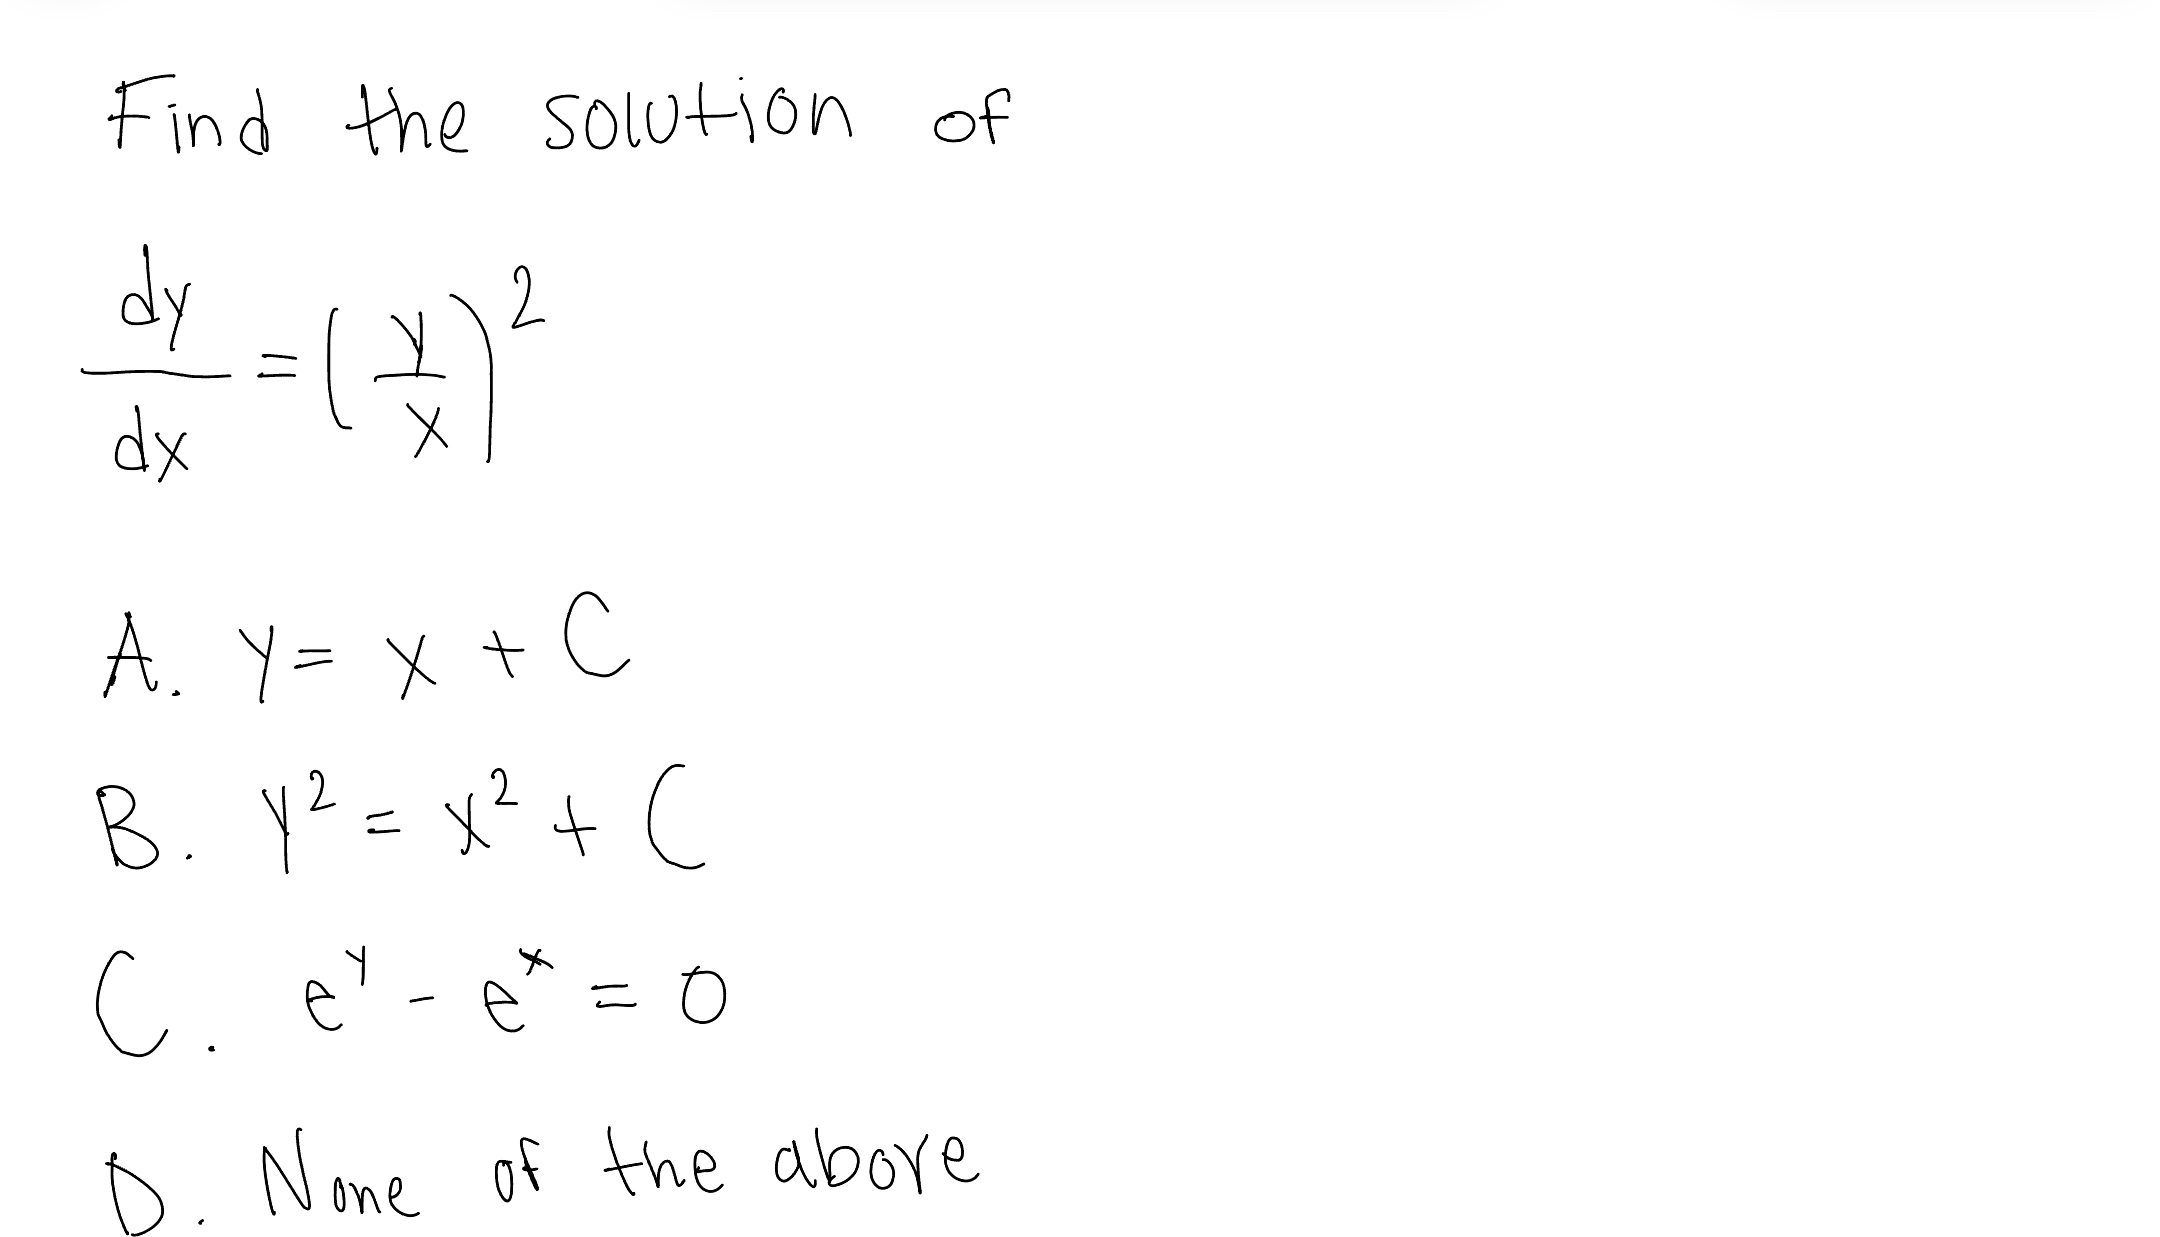 Find the solution of
dy/dx = (y/x)^2
A. y = x + C
B. y² = x² + C
C. e^y - e^x = 0
D. None of the above